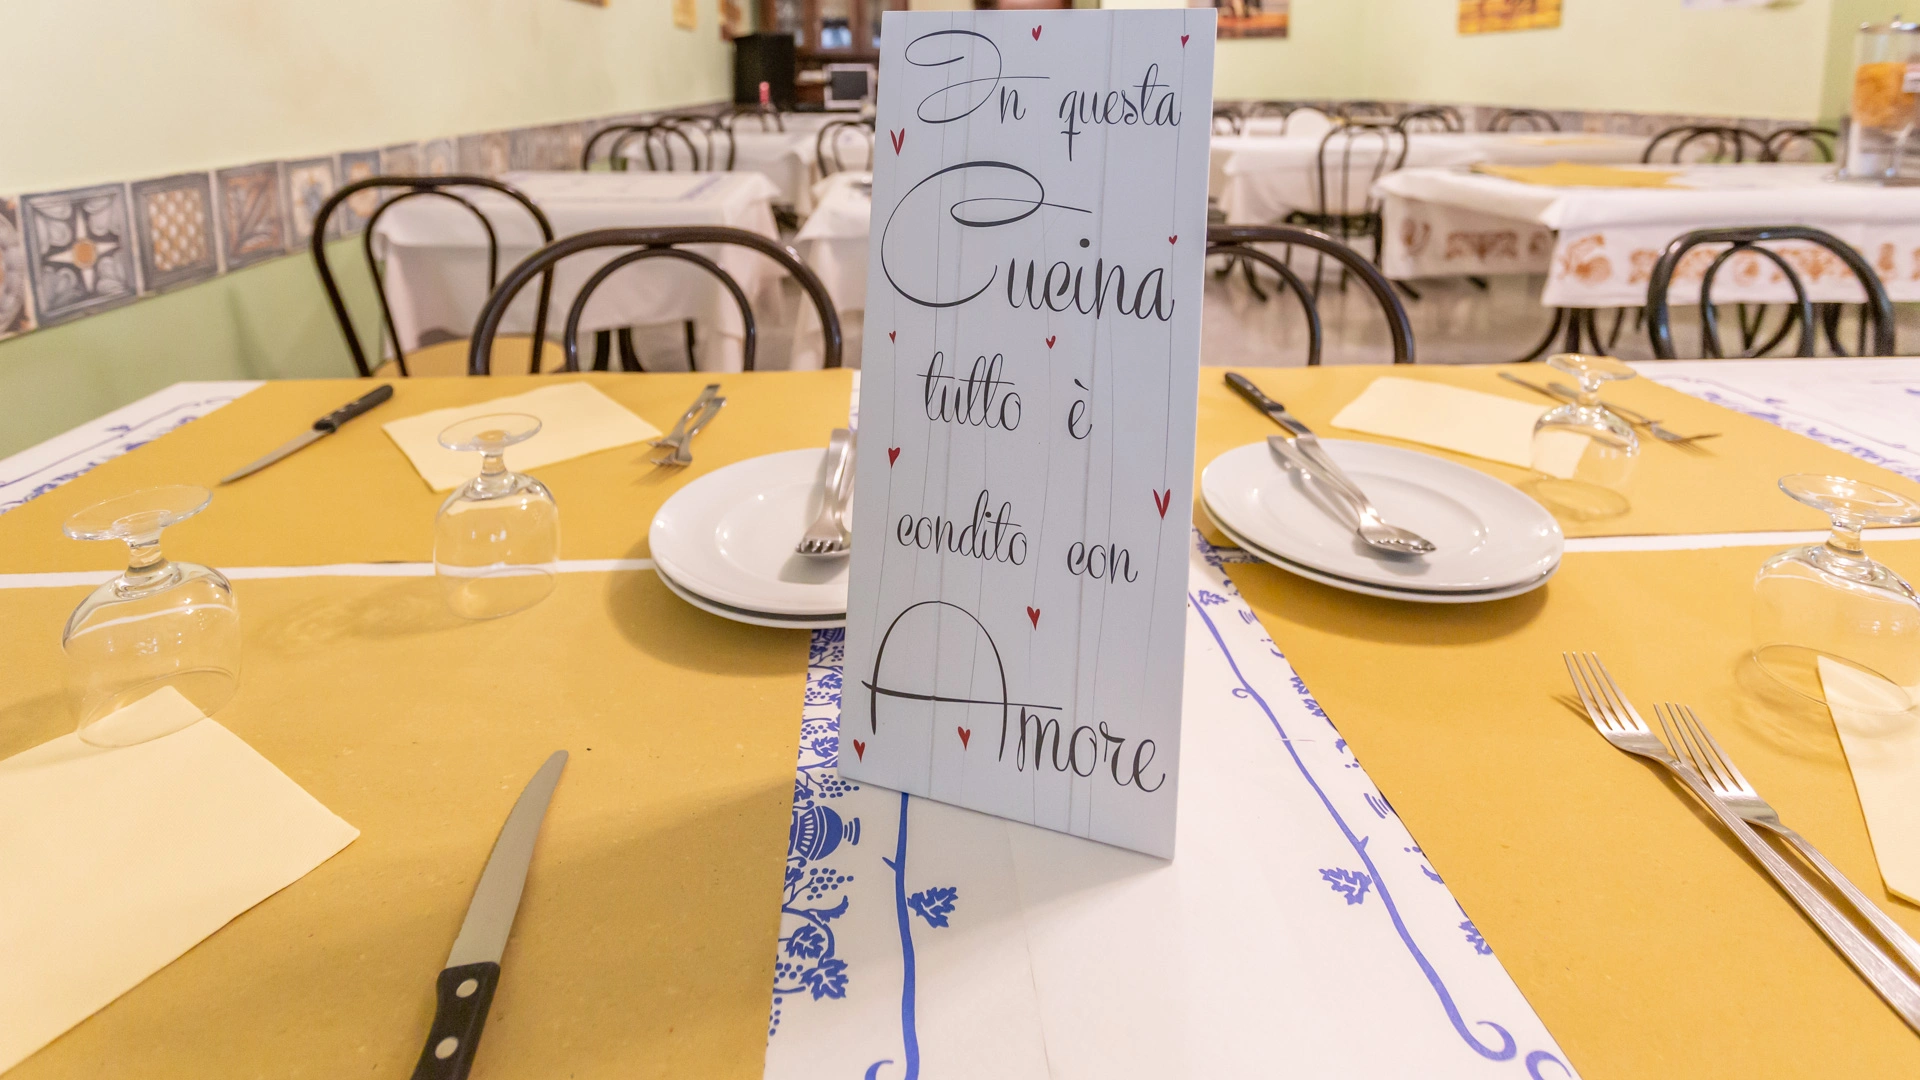 In questa
Cucina
tutto è
condito con
Amore